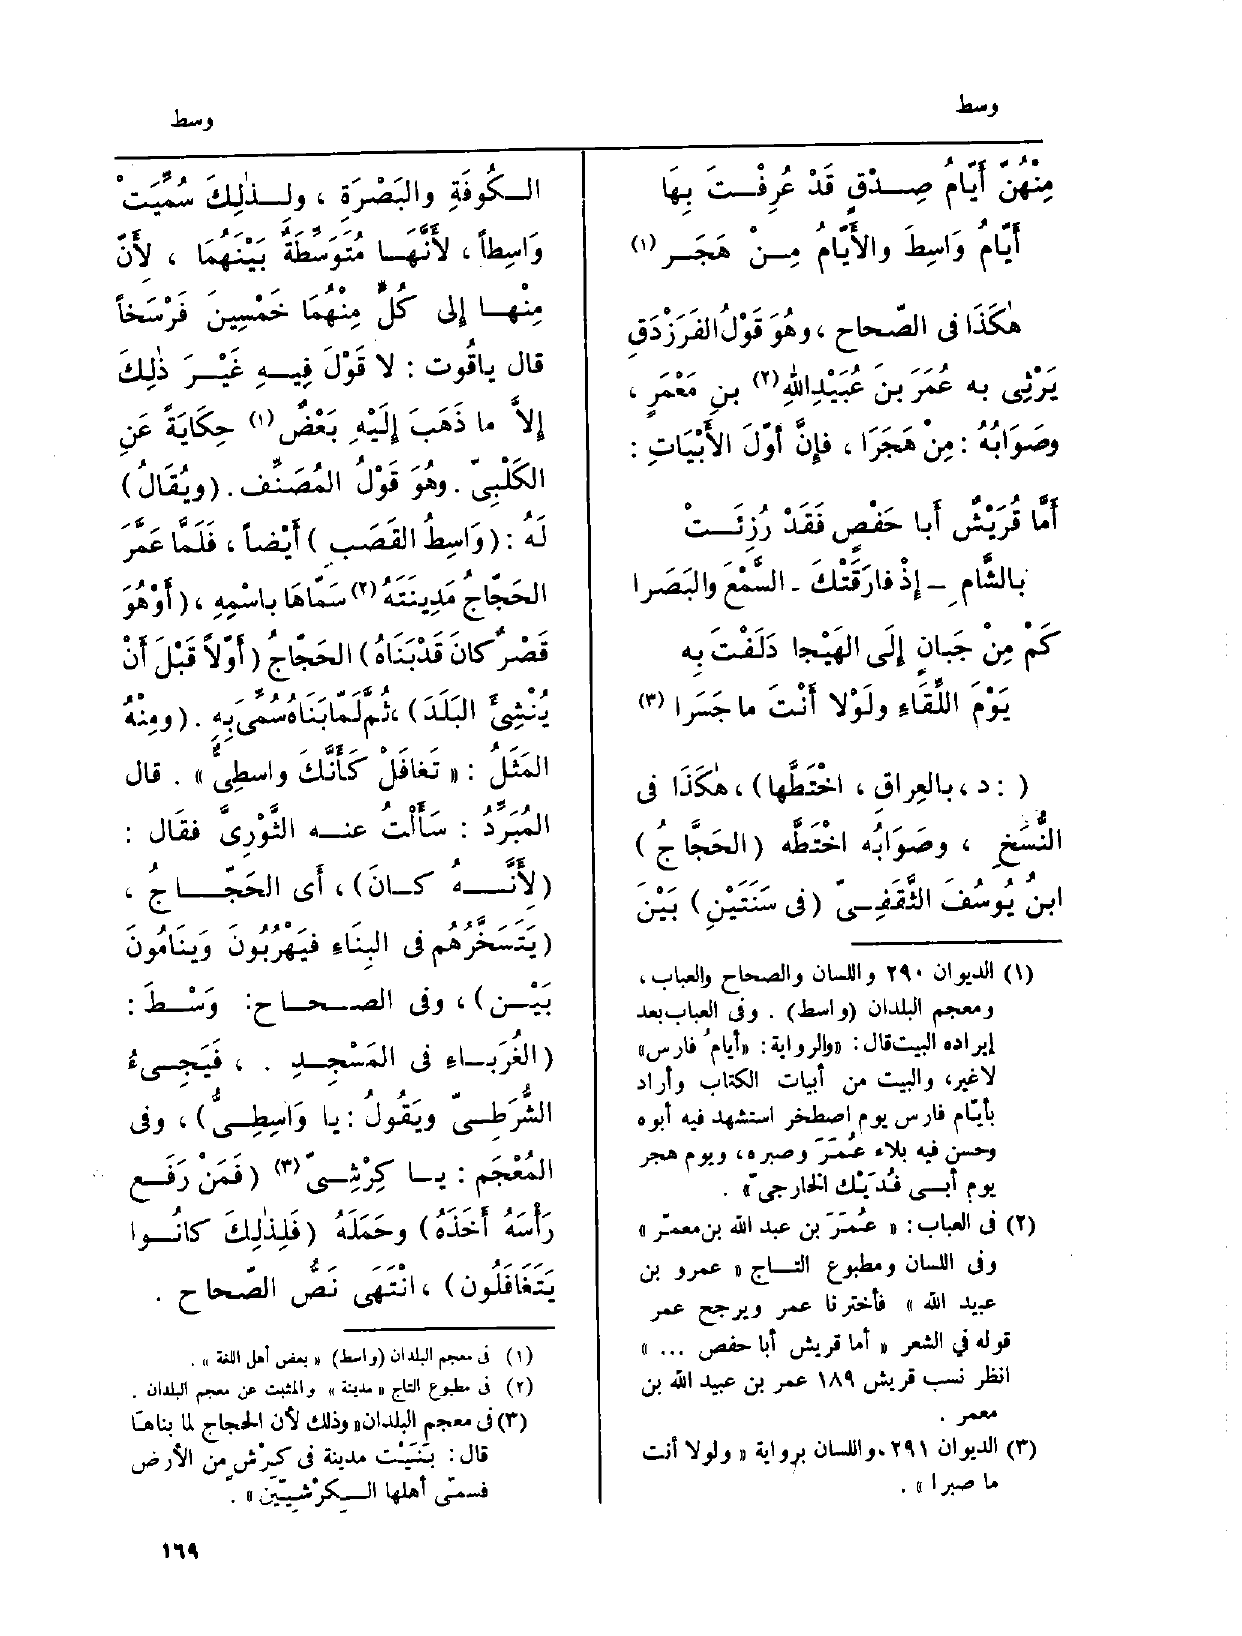 وسط
وسط
مِنْهُنّ أَيّامُ صِدْقٍ قَدْ عُرِفْتَ بِهَا
أَيّامُ وَاسِطَ والأَيّامُ مِنْ هَجَرِ (١)
هٰكَذَا فى الصّحاح ، وهُوَ قَوْلُ الفَرَزْدَقِ
يَرْثِى به عُمَرَ بنَ عُبَيْدِاللهِ (٢) بنِ مَعْمَرٍ ،
وصَوَابُهُ : مِنْ هَجَرَا ، فإِنَّ أَوّلَ الأَبْيَاتِ :
أَمَّا قُرَيْشٌ أَبا حَفْصٍ فَقَدْ رُزِئَتْ
بالشّامِ - إِذْ فارَقَتْكَ - السَّمْعَ والبَصَرا
كَمْ مِنْ جَبانٍ إِلَى الهَيْجا دَلَفْتَ به
يَوْمَ اللِّقَاءِ ولَوْلا أَنْتَ ما جَسَرا (٣)
( : د ، بالعِراقِ ، اخْتَطَّها) ، هٰكَذَا فى
النُّسَخِ ، وصَوَابُه اخْتَطَّه (الحَجَّاجُ)
ابنُ يُوسُفَ الثَّقَفِىّ (فى سَنَتَيْنِ) بَيْنَ
(١) الديوان ٢٩٠ واللسان والصحاح والعباب ،
ومعجم البلدان (واسط) . وفى العباب بعد
إيراده البيت قال : «والرواية : «أيامُ فارس»
لاغير، والبيت من أبيات الكتاب وأراد
بأيّام فارس يوم اصطخر استشهد فيه أبوه
وحسن فيه بلاء عُمَرَ وصبره، ويوم هجر
يوم أبى فُدَيْك الخارجىّ» .
(٢) فى العباب : « عُمَرَ بن عبد الله بن معمَر »
وفى اللسان ومطبوع التاج « عمرو بن
عبيد الله » فأخترنا عمر ويرجح عمر
قوله في الشعر « أما قريش أبا حفص ... »
انظر نسب قريش ١٨٩ عمر بن عبيد الله بن
معمر .
(٣) الديوان ٢٩١ ، واللسان برواية « ولولا أنت
ما صبرا » .
الكُوفَةِ والبَصْرَةِ ، ولِذٰلِكَ سُمِّيَتْ
وَاسِطاً ، لأَنَّها مُتَوَسِّطَةٌ بَيْنَهُمَا ، لأَنّ
مِنْها إِلى كُلٍّ مِنْهُمَا خَمْسِينَ فَرْسَخاً
قال ياقُوت : لا قَوْلَ فِيهِ غَيْرَ ذٰلِكَ
إِلاّ ما ذَهَبَ إِلَيْهِ بَعْضٌ (١) حِكَايَةً عَنِ
الكَلْبِىّ . وهُوَ قَوْلُ المُصَنِّف . (ويُقَالُ)
لَهُ : (وَاسِطُ القَصَبِ) أَيْضاً ، فَلَمَّا عَمَّرَ
الحَجّاجُ مَدِينَتَهُ (٢) سَمّاهَا بِاسْمِهِ ، (أَوْ هُوَ
قَصْرٌ كانَ قَدْ بَنَاهُ) الحَجّاجُ (أَوّلاً قَبْلَ أَنْ
يُنْشِئَ البَلَدَ) ، ثُم لَمّا بَناهُ سُمِّىَ بِهِ . (ومِنْهُ
المَثَلُ : « تَغافَلْ كَأَنَّكَ واسِطِىٌّ» . قال
المُبَرِّدُ : سَأَلْتُ عنه الثَّوْرِىَّ فقال :
(لأَنَّهُ كانَ) ، أَى الحَجّاجُ ،
(يَتَسَخَّرُهُم فى البِنَاءِ فيَهْرُبُونَ وَيَنامُونَ
بَيْنَ) ، وفى الصحاح : وَسْطَ :
(الغُرَباءِ فى المَسْجِدِ . ، فَيَجِىءُ
الشُّرَطِىّ ويَقُولُ : يا وَاسِطِىُّ) ، وفى
المُعْجَم : يا كِرْشِىّ (٣) (فَمَنْ رَفَع
رَأْسَهُ أَخَذَهُ) وحَمَلَهُ (فَلِذٰلِكَ كانُوا
يَتَغَافَلُون) ، انْتَهَى نَصُّ الصّحاحِ .
(١) فى معجم البلدان (واسط) « بعض أهل اللغة » .
(٢) فى مطبوع التاج « مدينة » والمثبت عن معجم البلدان .
(٣) فى معجم البلدان « وذلك لأن الحجاج لما بناها
قال : بَنَيْت مدينة فى كِرْش من الأرض
فسمّى أهلها الكِرْشِيّين » .
١٦٩